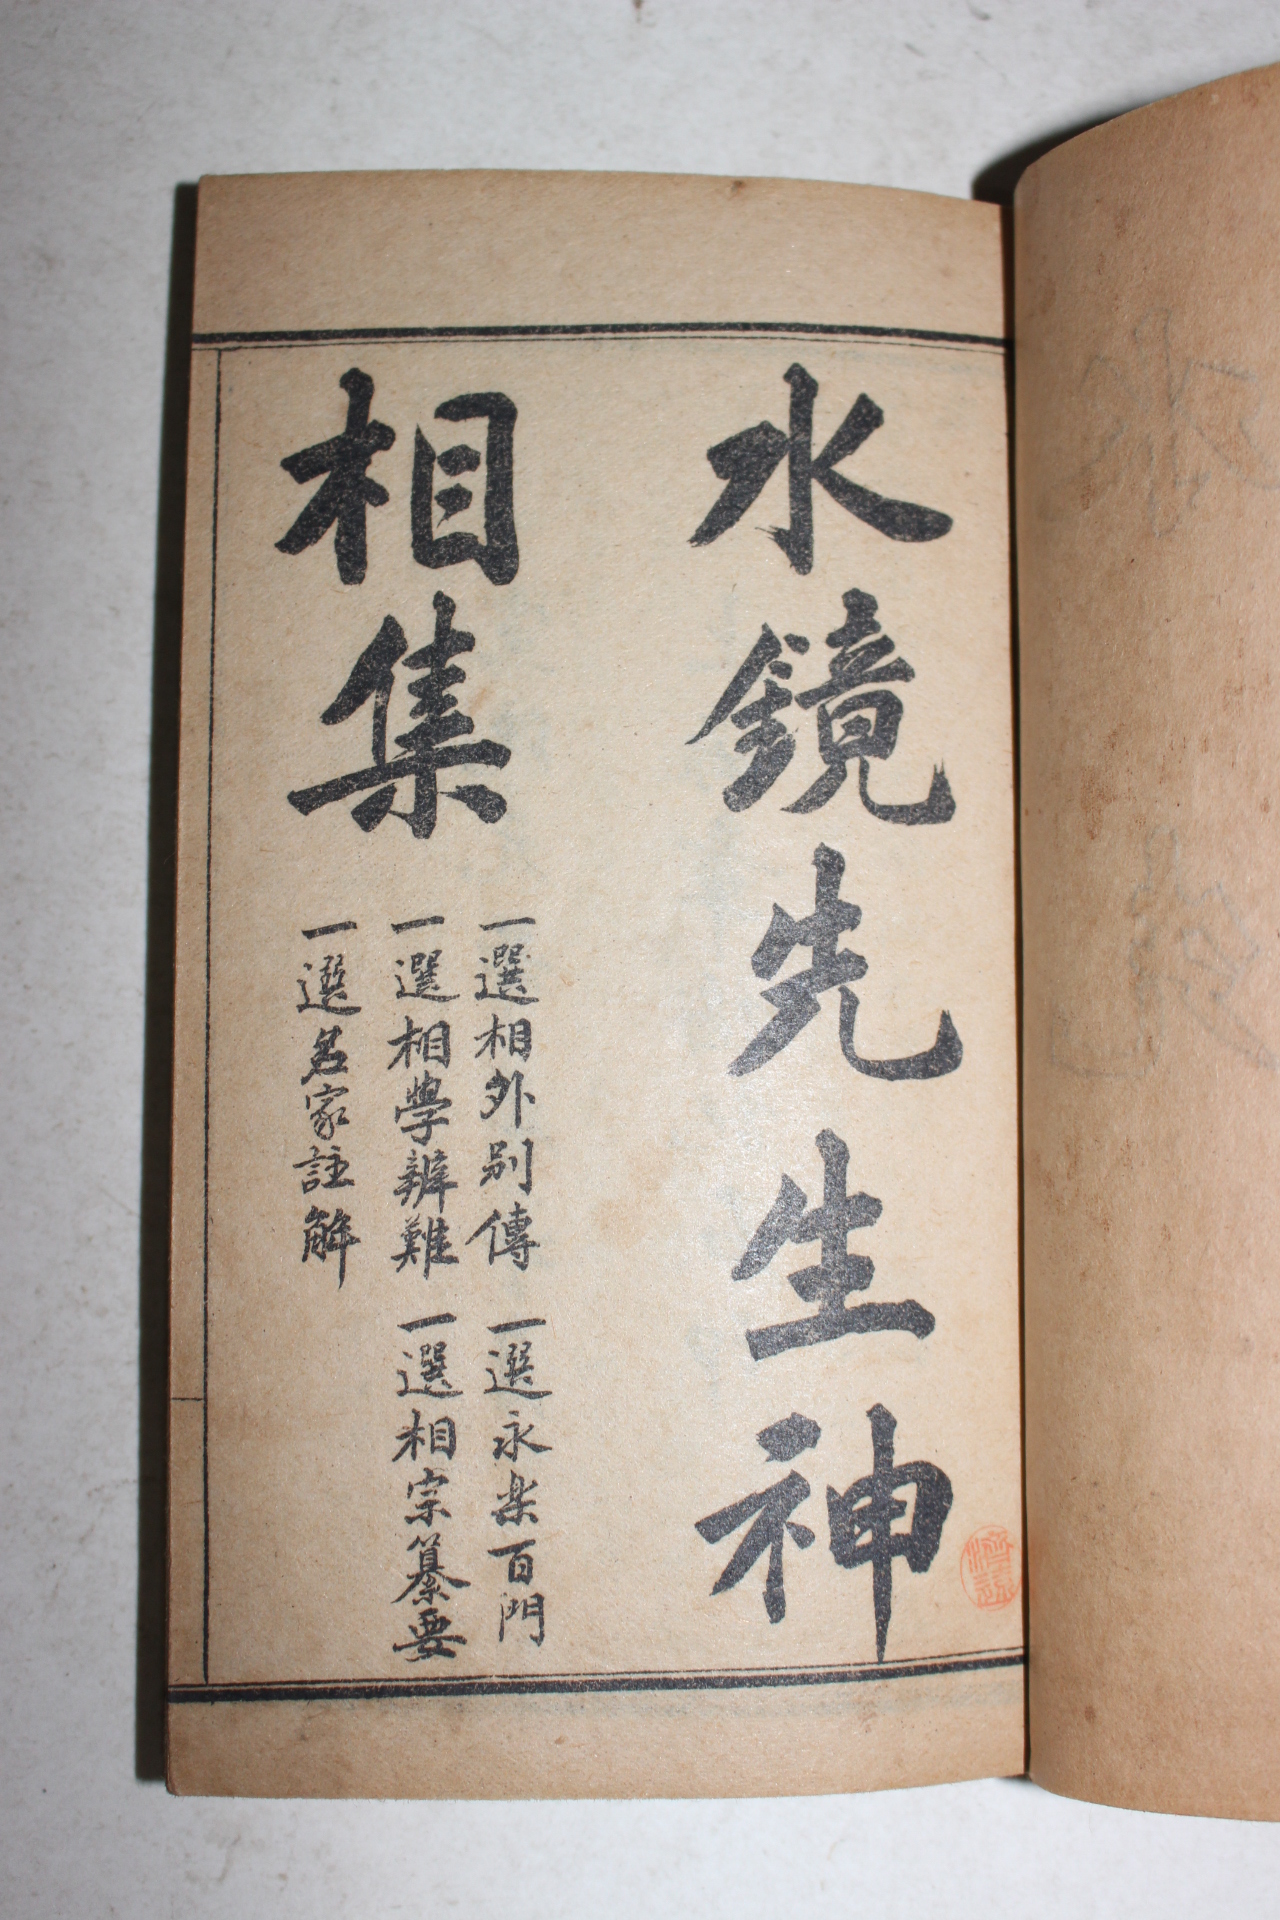 水鏡先生神
相集
一選相外別傳
一選永樂百門
一選相學辨難
一選相宗纂要
一選名家註解